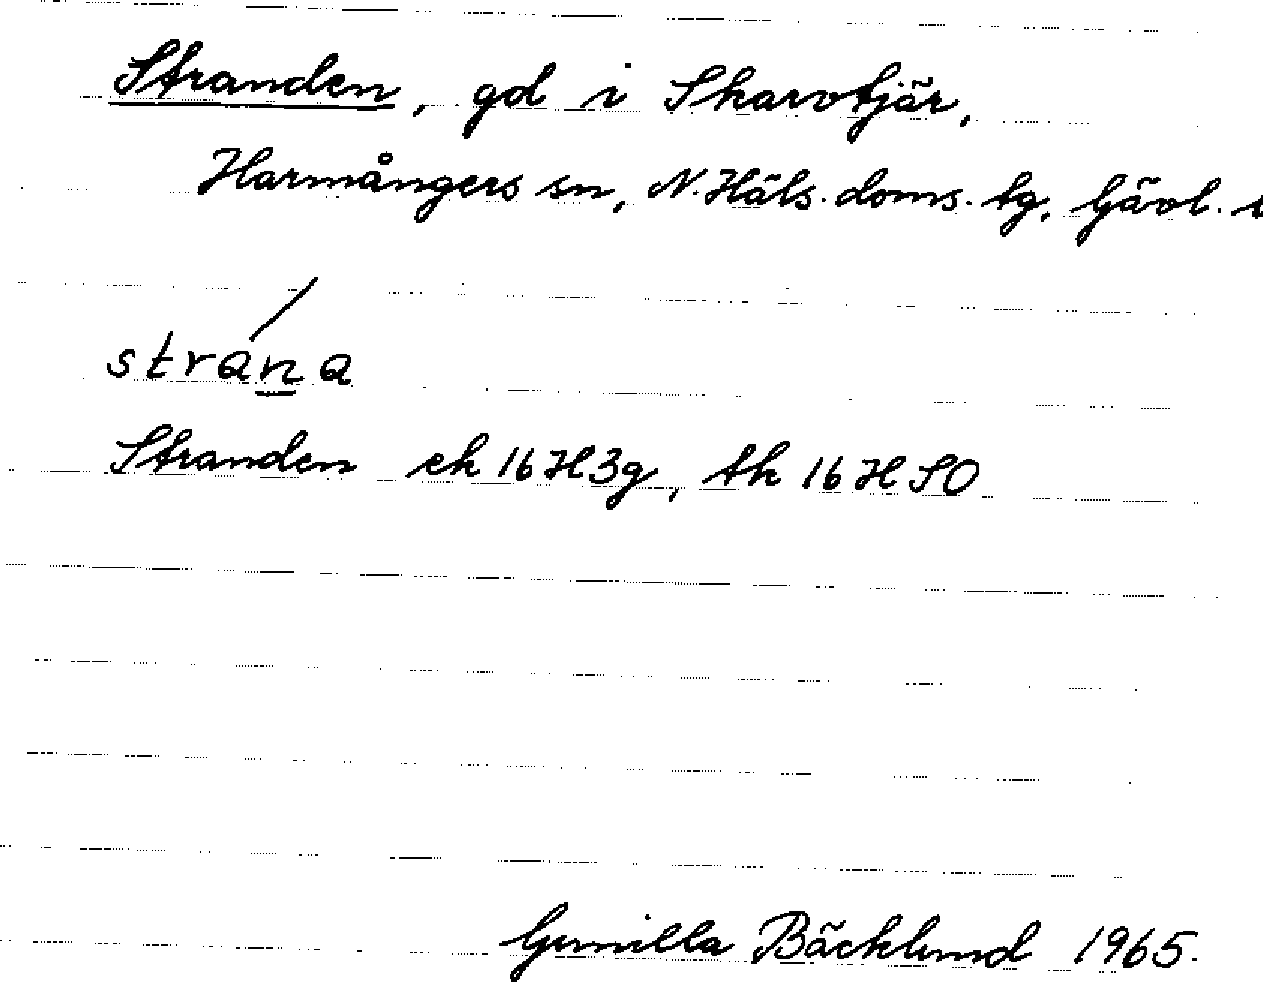 Stranden, gd i Skarvtjär,
Harmångers sn, N. Häls. doms. tg, Gävl.
strána
Stranden ek 16H3g, tk 16H SO
Gunilla Bäcklund 1965.